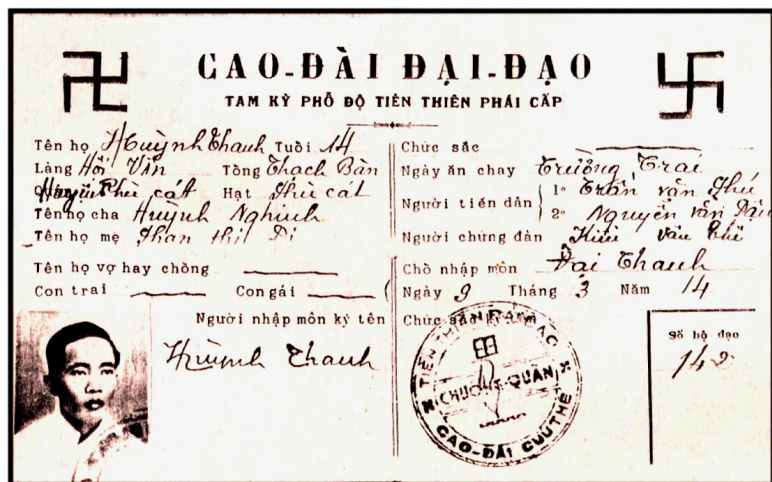 CAO-ĐÀI ĐẠI-ĐẠO
TAM KỲ PHỔ ĐỘ TIÊN THIÊN PHÁI CẤP
Tên họ Huỳnh Thanh Tuổi 14
Làng Hội Vân Tổng Thạch Bàn
Phù cát Hạt Phù cát
Tên họ cha Huỳnh Nghinh
Tên họ mẹ Phan thị Di
Tên họ vợ hay chồng
Con trai Con gái
Người nhập môn ký tên
Huỳnh Thanh
Chức sắc
Ngày ăn chay Trường Trai
Người tiến dẫn 1º Trần văn Phú
2º Nguyễn văn
Người chứng đàn văn
Chỗ nhập môn Đại Thanh
Ngày 9 Tháng 3 Năm 14
Chức sắc ký tên
TIÊN THIÊN
CHƯỞNG-QUẢN
CAO-ĐÀI CỨU THẾ
Số bộ đạo
142